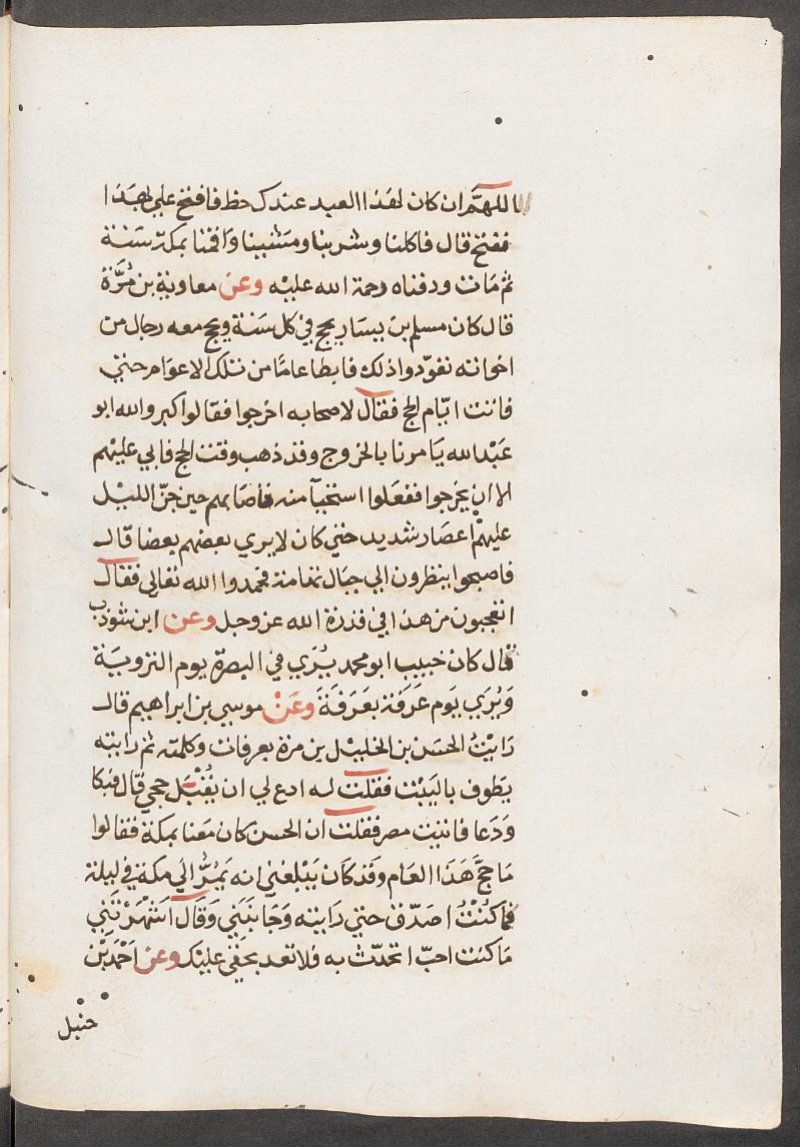 اللهم ان كان لهذا العبد عندك حظ فافتح علي بهذا
ففتح قال فاكلنا وشربنا ومشينا واقمنا بمكة سنة
ثم مات ودفناه رحمة الله عليه وعن معاوية بن مُرَّة
قال كان مسلم بن يسار يحج في كل سنة ويحج معه رجال من
اخوانه تعوّدوا ذلك فابطا عامًا من تلك الاعوام حتي
فاتت ايّام الحج فقال لاصحابه اخرجوا فقالوا كبر والله ابو
عَبْد الله يَامرنا بالخروج وقد ذهب وقت الحج فابي عليهم
الا ان يخرجوا ففعلوا استحيآ منه فاصابهم حين جنّ الليل
عليهم اعصار شديد حتي كان لا يري بعضهم بعضا قال
فاصبحوا ينظرون الي جبال تهامة فحمدوا الله تعالي فقال
اتعجبون من هذا في قدرة الله عز وجل وعن ابن شوذب
قال كان حبيب ابو محمد يُرَي في البصرة يوم التروية
وَيُرَي يَوم عَرَفَة بعَرَفَةَ وعَنْ موسي بن ابراهيم قال
رَايْتُ الحسَن بن الخليل بن مرة بعرفات وكلمته ثم رايته
يطوف بالبَيْت فقلت له ادع لي ان يُقْبَل حجي قال فبكا
وَدَعا فاتيت مصر فقلت ان الحسن كان مَعنا بمكة فقالوا
مَا حجَّ هَذَا العَام وَقَد كَان يَبْلغني انه يَمُرُّ الي مكة في ليلة
فما كُنْتُ اصَدّق حتي رَايته وَجَا بَنَبَني وَقَال اَشْهَرْتَني
مَا كنت احبّ اتحدّث به فلا تعد بحقي عليْك وعن احْمَد بْن
حنبل